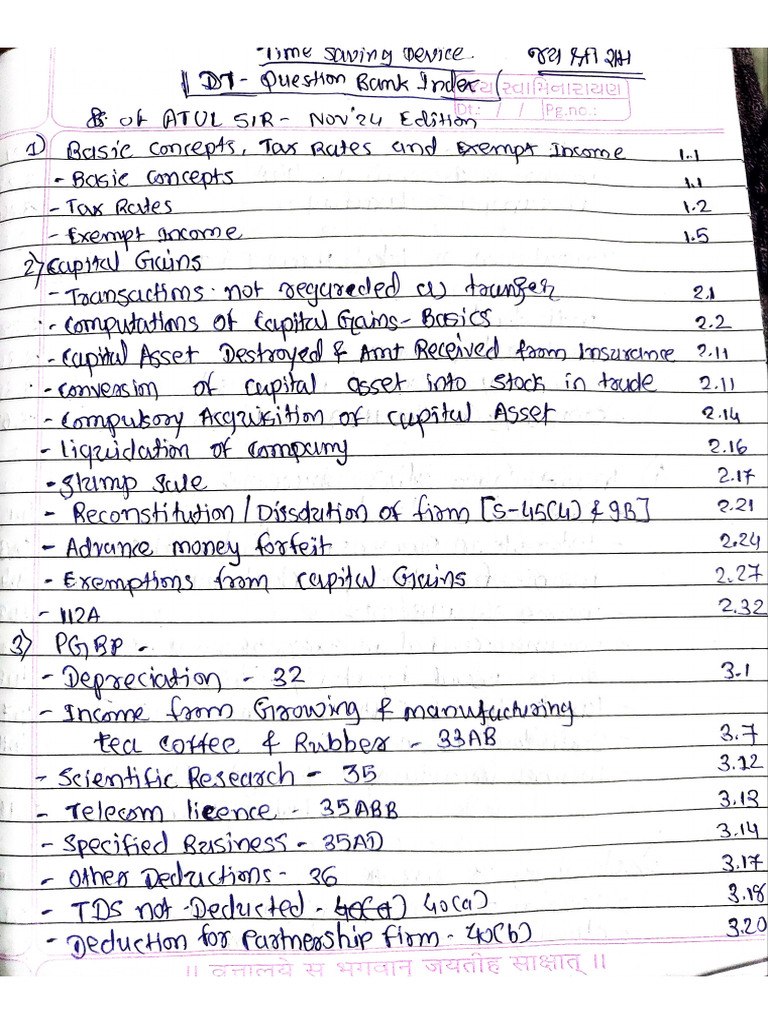 Time Saving Device.
જય શ્રી રામ
DT - Question Bank Index
સ્વામિનારાયણ
Dt.: / / Pg.no.:
of ATUL SIR - Nov'24 Edition
1) Basic Concepts, Tax Rates and Exempt Income 1.1
- Basic Concepts 1.1
- Tax Rates 1.2
- Exempt Income 1.5
2) Capital Gains
- Transactions not regareded as transfer 2.1
- Computations of Capital Gains - Basics 2.2
- Capital Asset Destroyed & Amt Received from Insurance 2.11
- Conversion of capital asset into stock in trade 2.11
- Compulsory Acquisition of Capital Asset 2.14
- Liquidation of Company 2.16
- Slump Sale 2.17
- Reconstitution / Dissolution of firm [S-45(4) & 9B] 2.21
- Advance money forfeit 2.24
- Exemptions from Capital Gains 2.27
- 112A 2.32
3) PGBP -
- Depreciation - 32 3.1
- Income from Growing & manufacturing
tea coffee & Rubber - 33AB 3.7
- Scientific Research - 35 3.12
- Telecom licence - 35ABB 3.13
- Specified Business - 35AD 3.14
- Other Deductions - 36 3.17
- TDS not Deducted - 40(a) 40(a) 3.18
- Deduction for Partnership firm - 40(b) 3.20
॥ वनालये स भगवान जयतीह साक्षात् ॥